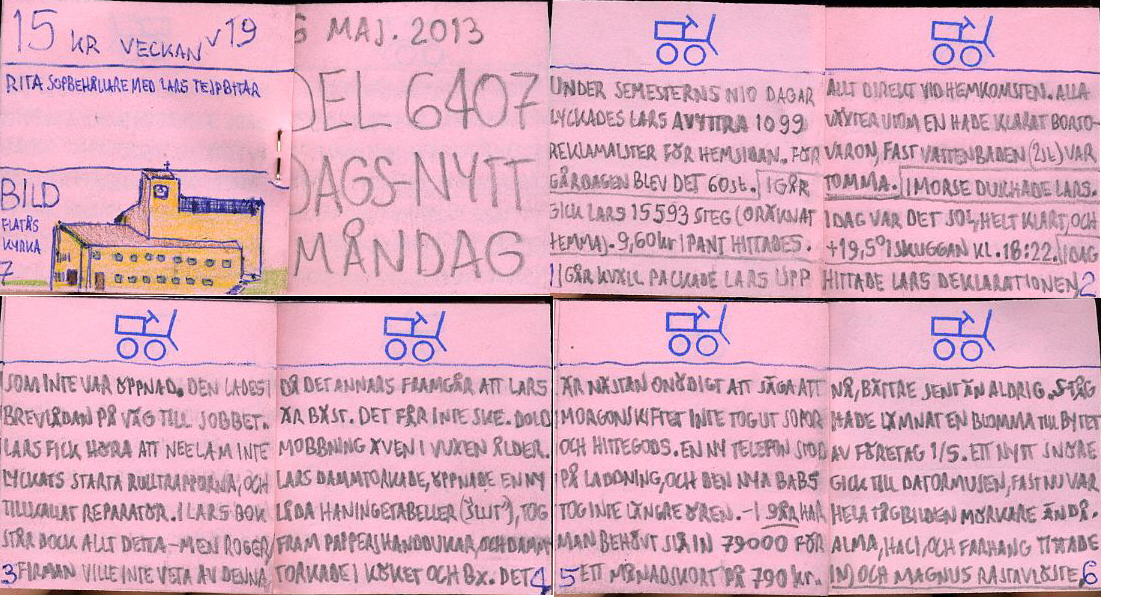 15 KR VECKAN v19
RITA SOPBEHÅLLARE MED LARS TEJPBITAR
BILD
FLATÅS
KYRKA
7
6 MAJ. 2013
DEL 6407
DAGS-NYTT
MÅNDAG
UNDER SEMESTERNS NIO DAGAR
LYCKADES LARS AVYTTRA 1099
REKLAMALSTER FÖR HEMSIDAN. FÖR
GÅRDAGEN BLEV DET 60st. I GÅR
GICK LARS 15593 STEG (ORÄKNAT
HEMMA). 9,60kr I PANT HITTADES.
1 I GÅR KVÄLL PACKADE LARS UPP
ALLT DIREKT VID HEMKOMSTEN. ALLA
VÄXTER UTOM EN HADE KLARAT BORTO-
VARON, FAST VATTENBADEN (2St) VAR
TOMMA. I MORSE DUKHADE LARS.
IDAG VAR DET SOL, HELT KLART, OCH
+19,5° I SKUGGAN KL. 18:22. IDAG
HITTADE LARS DEKLARATIONEN, 2
SOM INTE VAR ÖPPNAD. DEN LADES I
BREVLÅDAN PÅ VÄG TILL JOBBET.
LARS FICK HÖRA ATT NEELAM INTE
LYCKATS STARTA RULLTRAPPORNA, OCH
TILLKALLAT REPARATÖR. I LARS BOK
STÅR DOCK ALLT DETTA - MEN ROGER
3 FIRMAN VILLE INTE VETA AV DENNA,
DÅ DET ANNARS FRAMGÅR ATT LARS
ÄR BÄST. DET FÅR INTE SKE. DOLD
MOBBNING ÄVEN I VUXEN ÅLDER.
LARS DAMMTORKADE, ÖPPNADE EN NY
LÅDA HANINGETABELLER TOG
FRAM PAPPERSHANDDUKAR, OCH DAMM-
TORKADE I KÖKET OCH BX. DET 4
ÄR NÄSTAN ONÖDIGT ATT SÄGA ATT
MORGONSKIFTET INTE TOG UT SOPOR
OCH HITTEGODS. EN NY TELEFON STOD
PÅ LADDNING, OCH DEN NYA BABS
TOG INTE LÄNGRE ÖREN. - I 9 ÅR HAR
MAN BEHÖVT SLÅ IN 79000 FÖR
5 ETT MÅNADSKORT PÅ 790 kr.
NÅ, BÄTTRE SENT ÄN ALDRIG. STÅG
HADE LÄMNAT EN BLOMMA TILL BYTET
AV FÖRETAG 1/5. ETT NYTT SNÖRE
GICK TILL DATORMUSEN, FAST NU VAR
HELA TÅGBILDEN MÖRKARE ÄNDÅ.
ALMA, HACI, OCH FARHANG TITTADE
IN) OCH MAGNUS RASTAVLÖSTE, 6